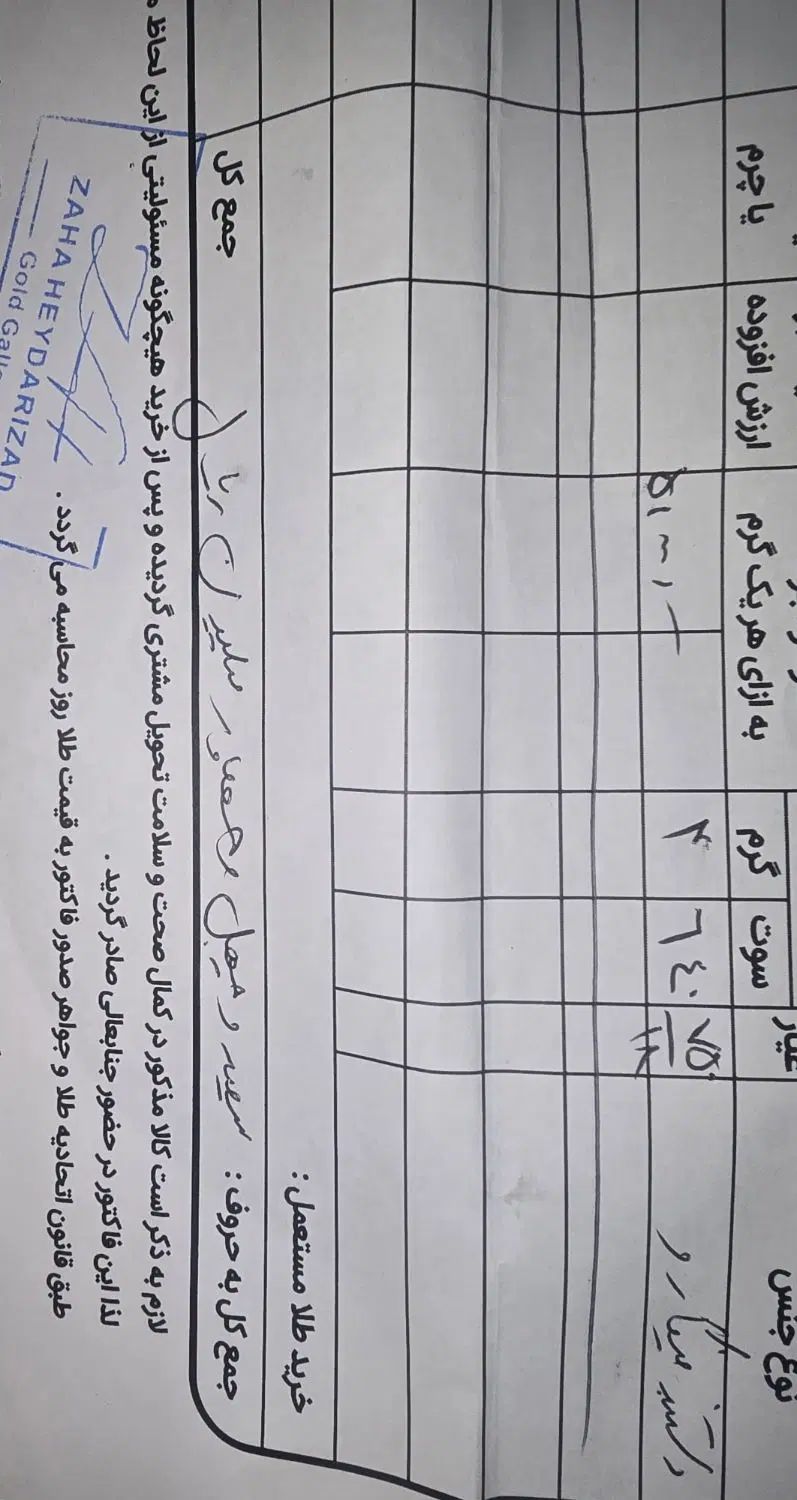 نوع جنس
عیار
سوت
گرم
به ازای هر یک گرم
ارزش افزوده
یا چرم
۷۵۰
۱۸
٦٤٠
۴
خرید طلا مستعمل :
جمع کل به حروف : سیصد و چهل و چهار میلیون ریال
جمع کل
لازم به ذکر است کالا مذکور در کمال صحت و سلامت تحویل مشتری گردیده و پس از خرید هیچگونه مسئولیتی از این لحاظ
لذا این فاکتور در حضور جنابعالی صادر گردید .
طبق قانون اتحادیه طلا و جواهر صدور فاکتور به قیمت طلا روز محاسبه می گردد .
ZAHA HEYDARIZAD
Gold